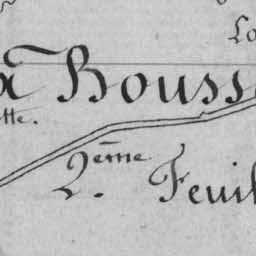 Lo
a Bouss
tte.
2ème Feuil
2.